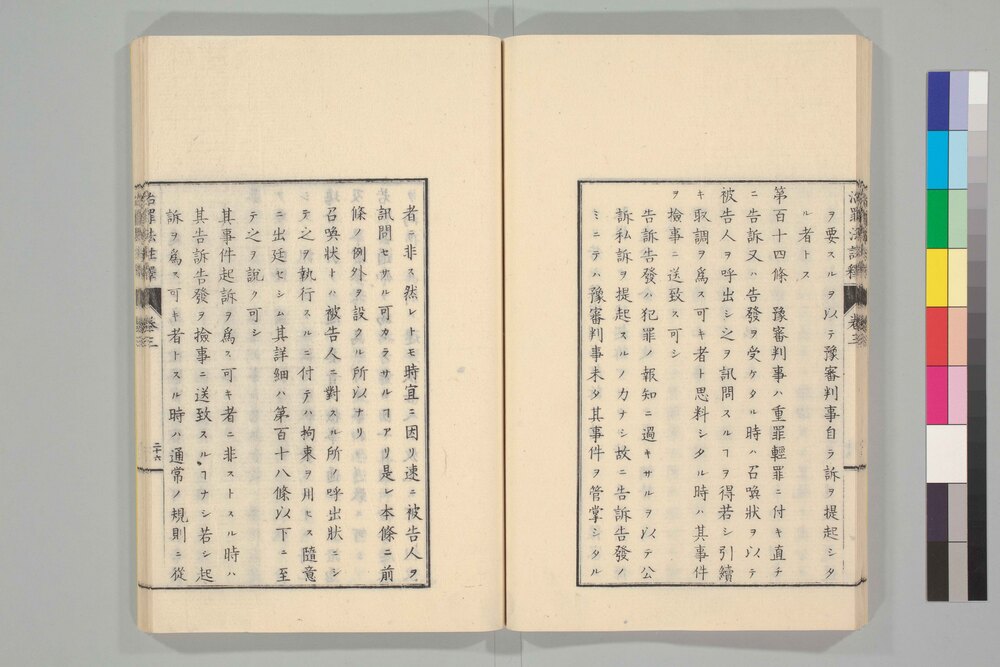 ヲ要スルヲ以テ豫審判事自ラ訴ヲ提起シタ
ル者トス
第百十四條 豫審判事ハ重罪輕罪ニ付キ直チ
ニ告訴又ハ告發ヲ受ケタル時ハ召喚狀ヲ以テ
被告人ヲ呼出シ之ヲ訊問スルヿヲ得若シ引續
キ取調ヲ爲ス可キ者ト思料シタル時ハ其事件
ヲ撿事ニ送致ス可シ
告訴告發ハ犯罪ノ報知ニ過キサルヲ以テ公
訴私訴ヲ提起スルノ力ナシ故ニ告訴告發ノ
ミニテハ豫審判事未タ其事件ヲ管掌シタル
者ニ非ス然レトモ時宜ニ因リ速ニ被告人ヲ
訊問セサル可カラサルヿアリ是レ本條ニ前
條ノ例外ヲ設クル所以ナリ
召喚狀トハ被告人ニ對スル所ノ呼出狀ニシ
テ之ヲ執行スルニ付テハ拘束ヲ用ヒス隨意
ニ出廷セシム其詳細ハ第百十八條以下ニ至
テ之ヲ說ク可シ
其事件起訴ヲ爲ス可キ者ニ非ストスル時ハ
其告訴告發ヲ撿事ニ送致スルヿナシ若シ起
訴ヲ爲ス可キ者トスル時ハ通常ノ規則ニ從
治罪法註釋 卷三
二十六